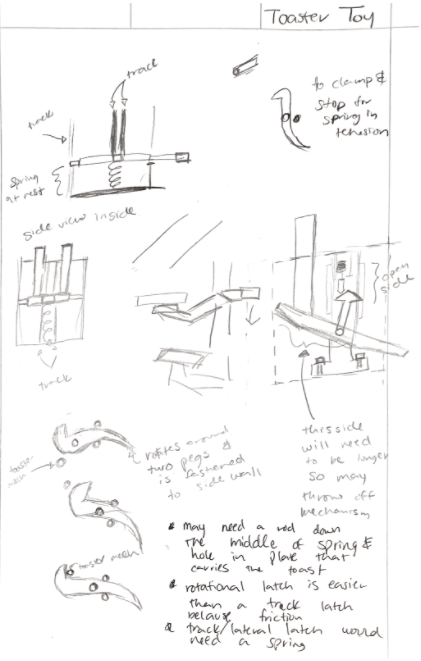 Toaster Toy
track
to clamp &
stop for
spring in
tension
track
spring
at rest
side view inside
open
side
track
this side
will need
to be longer
so may
throw off
mechanism
& rotates around
two pegs &
is fastened
to side wall
toaster
mech
toaster mech
• may need a rod down
the middle of spring &
hole in plate that
carries the toast
• rotational latch is easier
than a track latch
because friction
• track/lateral latch would
need a spring